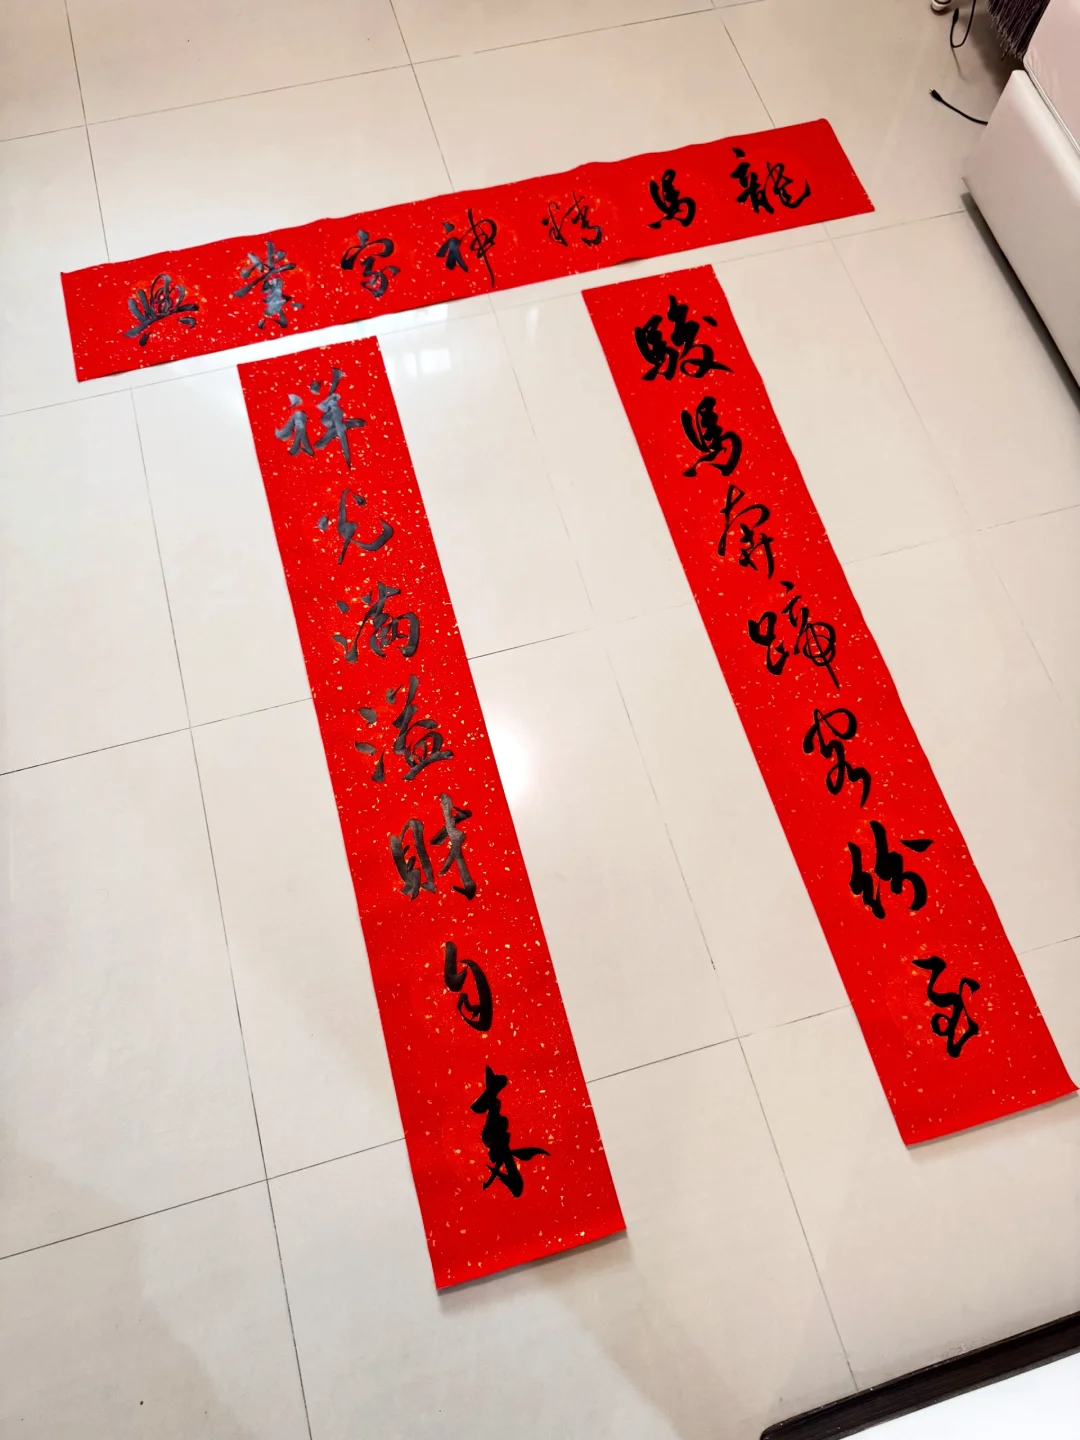 龍馬精神家業興
駿馬奔蹄客紛至
祥光滿溢財自來